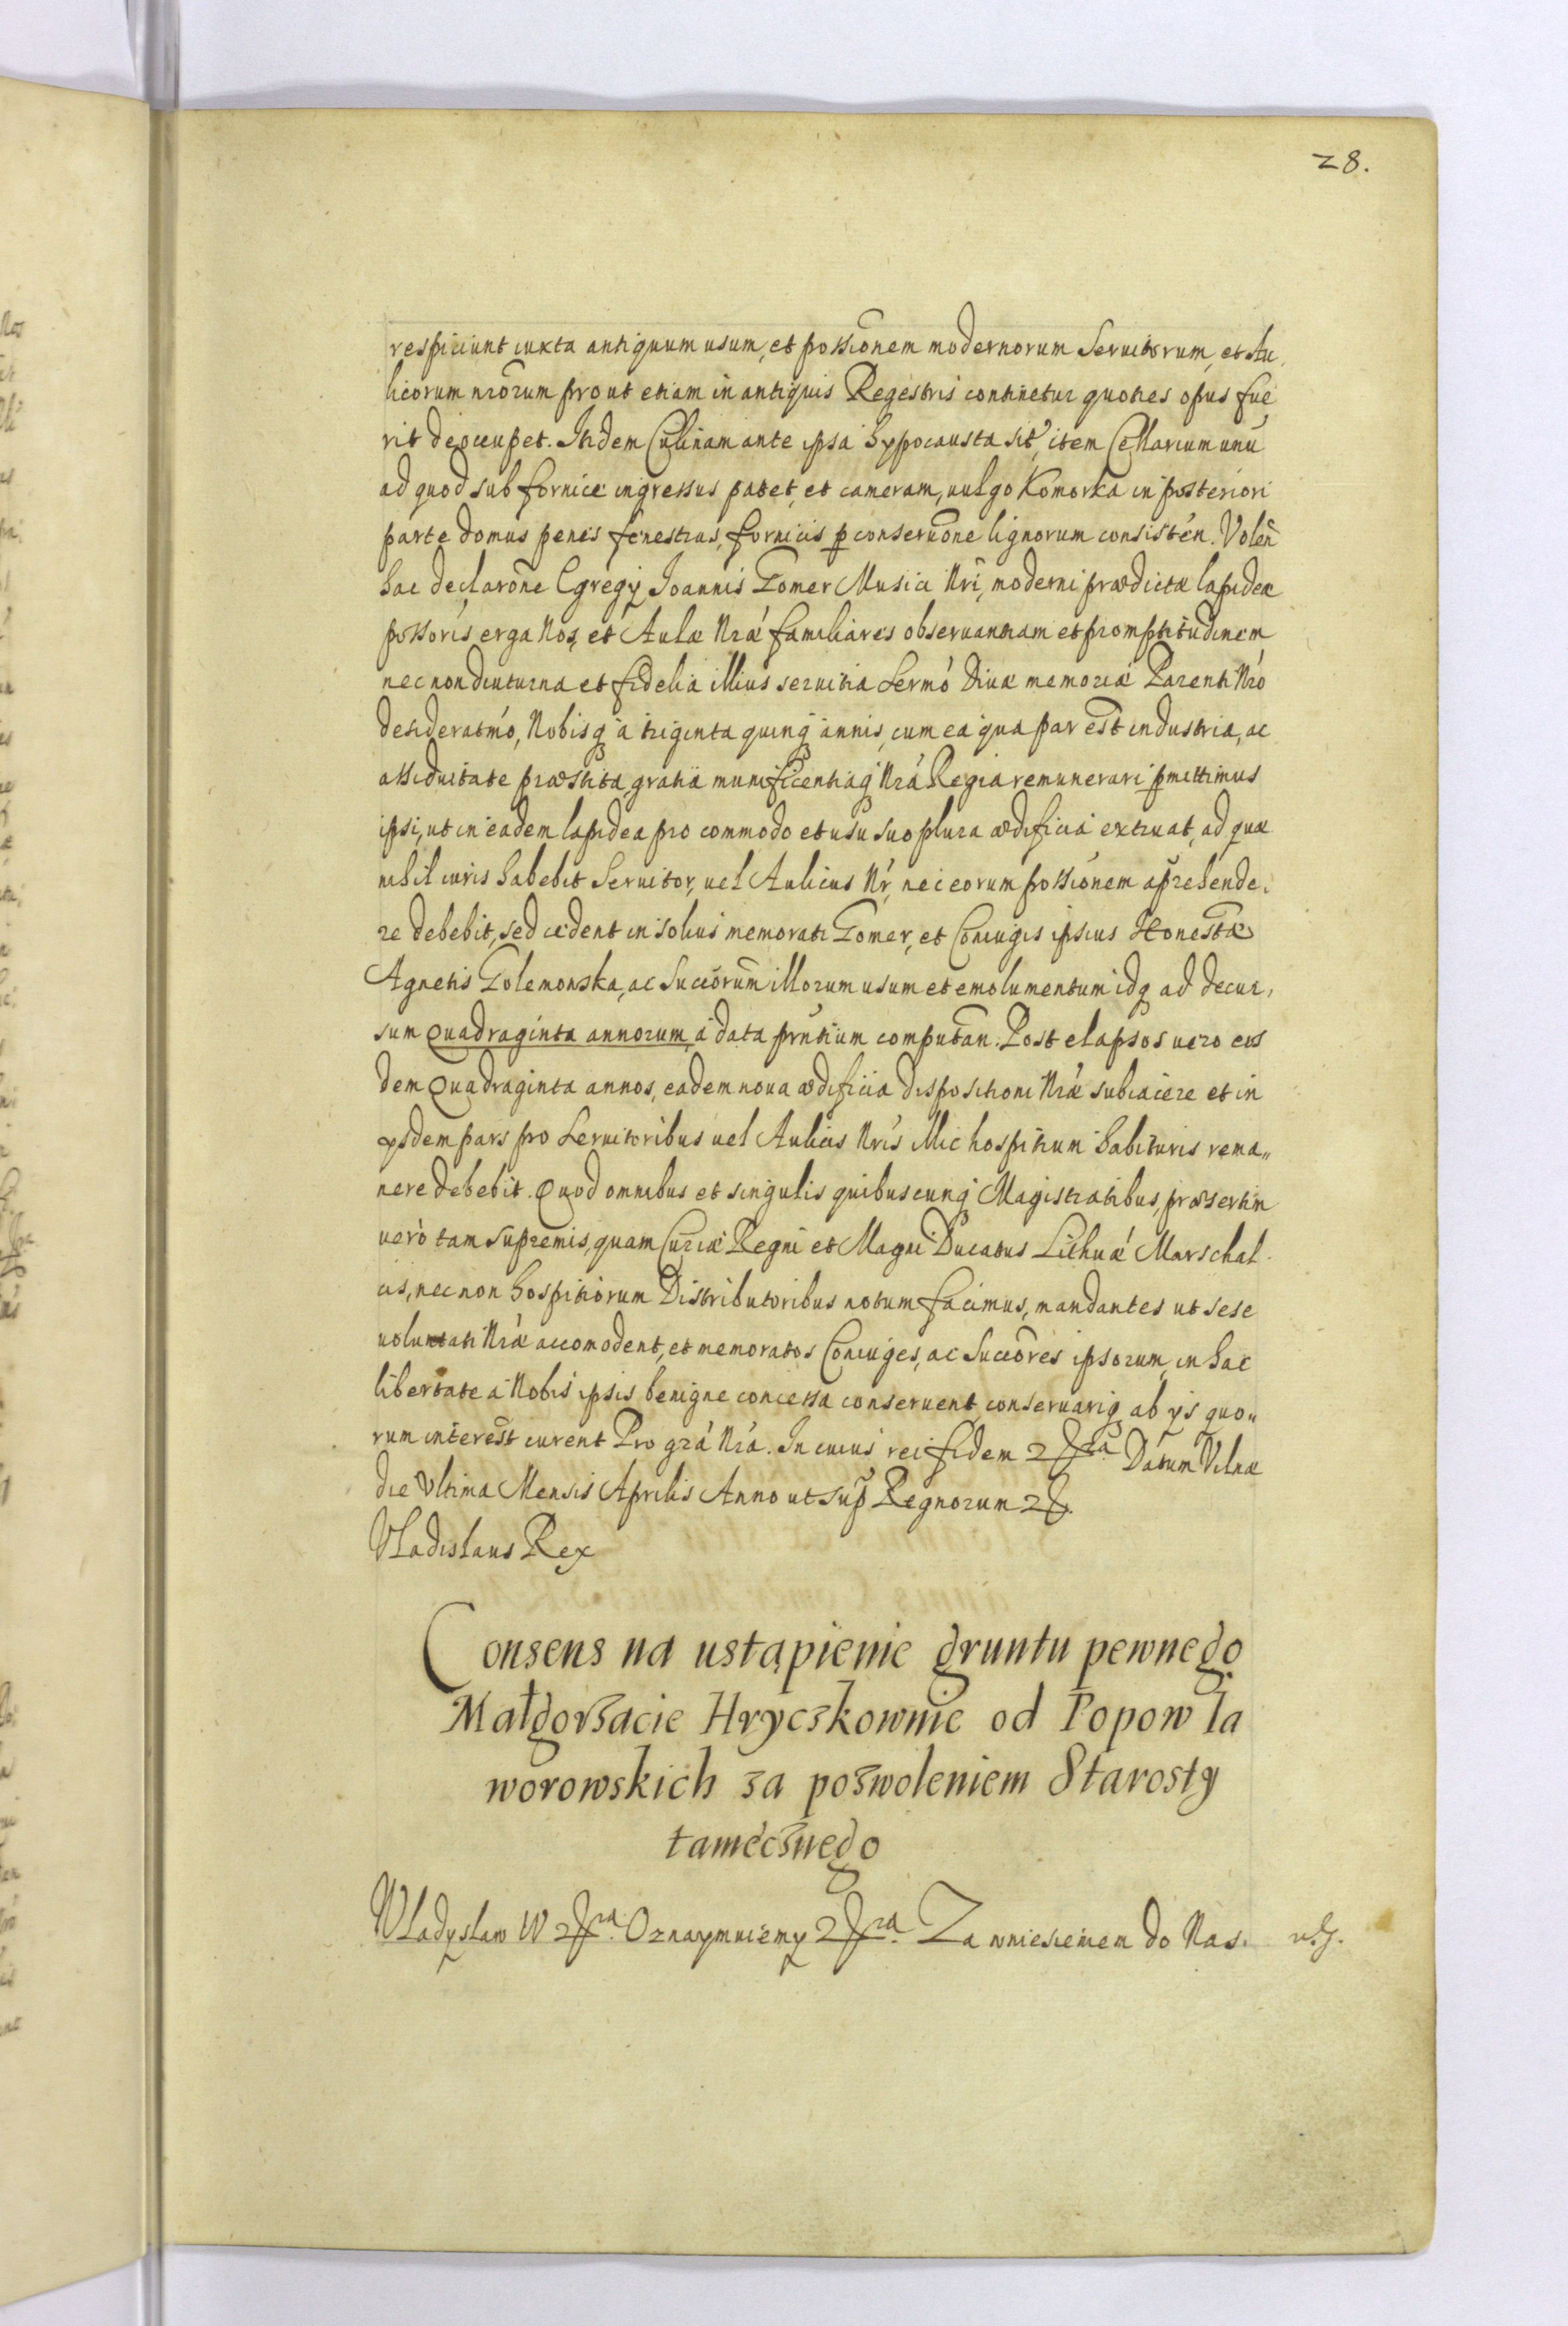 28.
respiciunt iuxta antiquum usum, et possionem modernorum Seruitorum, et Au,
licorum nrorum prout etiam in antiquis Regestris continetur quoties opus fue
rit deoccupet. Itidem Culinam ante ipsa hypocausta sit, item Cellarium unu
ad quod sub fornice ingressus patet, et cameram, uulgo Komorka in posteriori
parte domus penes fenestras, fornicis p conseruone lignorum consisten. Volen
hac declarone Egregy Joannis Gomer Musici Nri, moderni prædictæ lapideæ
possoris erga Nos, et Aulæ Nræ familiares obseruantiam et promptitudinem
nec non diuturna et fidelia illius seruitia Sermo Diuæ memoriæ Parenti Nro
desideratmo, Nobisq a triginta quinq annis, cum ea qua par est industria, ac
assiduitate præstita, gratia munificentiaq Nra Regia remunerari pmittimus
ipsi, ut in eadem lapidea pro commodo et usu suo plura ædificia extruat, ad quæ
nihil iuris habebit Seruitor, uel Aulicus Nr, nec eorum possionem aprehende,
re debebit, sed cedent in solius memorati Gomer, et Coniugis ipsius Honestæ
Agnetis Golemowska, ac Succorum illorum usum et emolumentum idq ad decur,
sum Quadraginta annorum a data pntium computan. Post elapsos uero eos
dem Quadraginta annos, eadem noua ædificia dispositioni Nræ subiacere et in
ysdem pars pro Seruitoribus uel Aulicis Nris illic hospitium habituris rema„
nere debebit. Quod omnibus et singulis quibuscunq Magistratibus, præsertim
uero tam supremis, quam Curiæ Regni et Magni Ducatus Lithuæ Marschal
cis, nec non hospitiorum Distributoribus notum facimus, mandantes ut sese
uoluntati Nræ accomodent, et memoratos Coniuges, ac Succores ipsorum, in hac
libertate a Nobis ipsis benigne concessa conseruent, conseruariq ab ys quo„
rum interest curent Pro gra Nra. In cuius rei fidem Datum Vilnæ
die Vltima Mensis Aprilis Anno ut sup Regnorum
Vladislaus Rex
Consens na ustąpienie gruntu pewnego
Małgorzacie Hryczkownie od Popow Ia
worowskich za pozwoleniem Starosty
tamecznego
Władysław IV Oznaymuiemy Za wniesieniem do Nas.